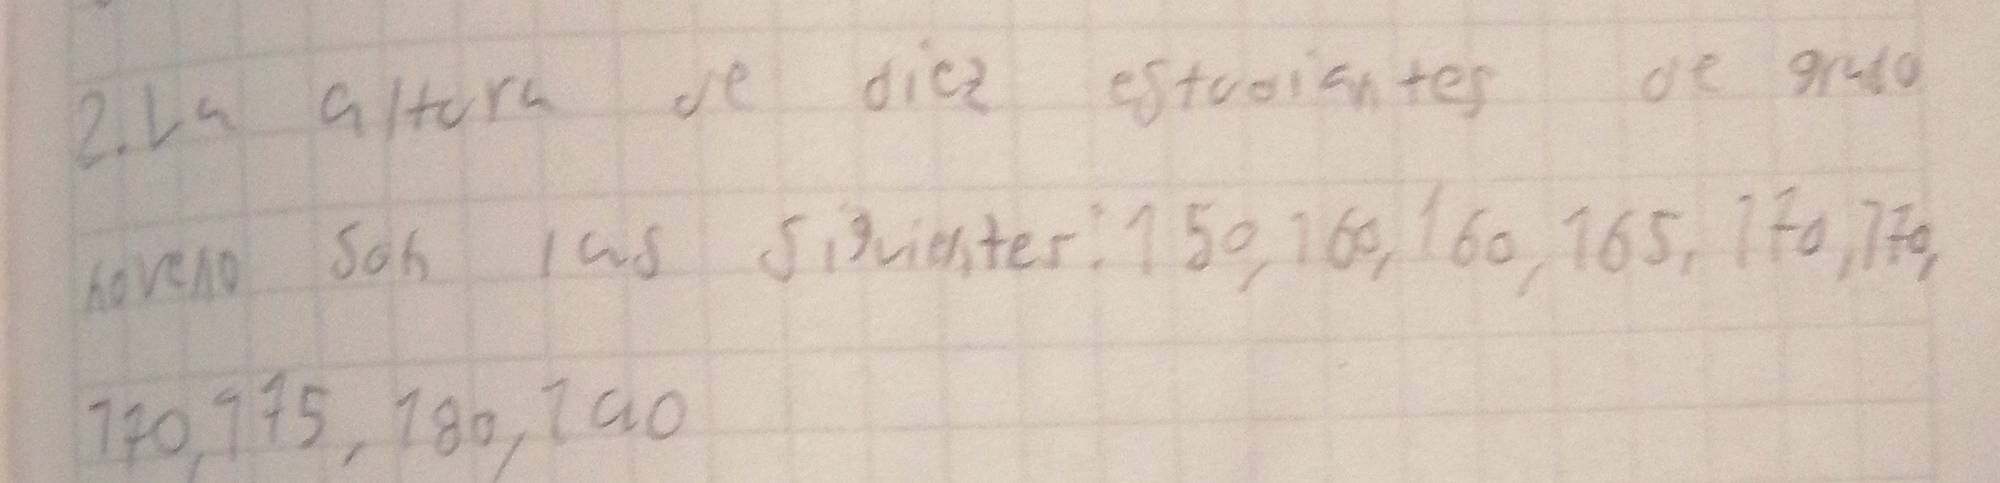 2. La altura de diez estudiantes de grado
noveno son las siguientes: 150, 160, 160, 165, 170, 170,
170, 175, 180, 190